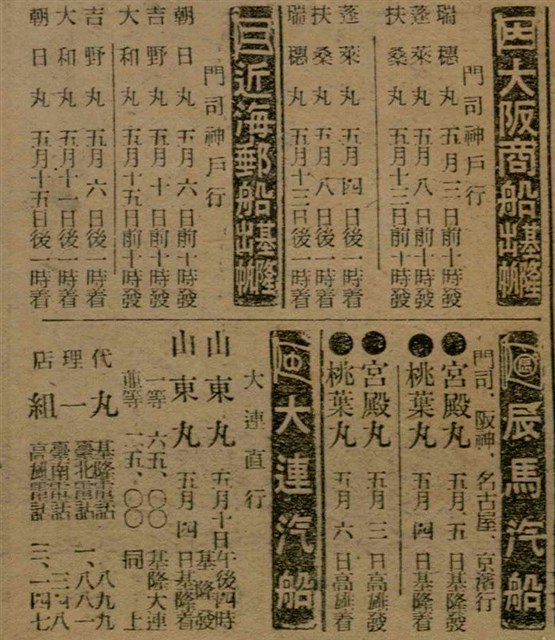 大阪商船基隆出帆
門司神戶行
瑞穗丸 五月三日前十時發
蓬萊丸 五月八日前十時發
扶桑丸 五月十三日前十時發
蓬萊丸 五月四日後一時着
扶桑丸 五月八日後一時着
瑞穗丸 五月十三日後一時着
近海郵船基隆出帆
門司神戶行
朝日丸 五月六日前十時發
吉野丸 五月十日前十時發
大和丸 五月十五日前十時發
吉野丸 五月六日後一時着
大和丸 五月十一日後一時着
朝日丸 五月十五日後一時着
辰馬汽船
門司、阪神、名古屋、京濱行
●宮殿丸 五月五日基隆發
●桃葉丸 五月四日基隆着
●宮殿丸 五月三日高雄發
●桃葉丸 五月六日高雄着
大連汽船
大連直行
山東丸 五月十日午後四時基隆發
山東丸 五月四日基隆着
一等 六五、〇〇 基隆大連
並等 二五、〇〇 同上
代理店 丸一組
基隆電話 八九九
臺北電話 一、八八一
臺南電話 三八
高雄電話 三、一四七